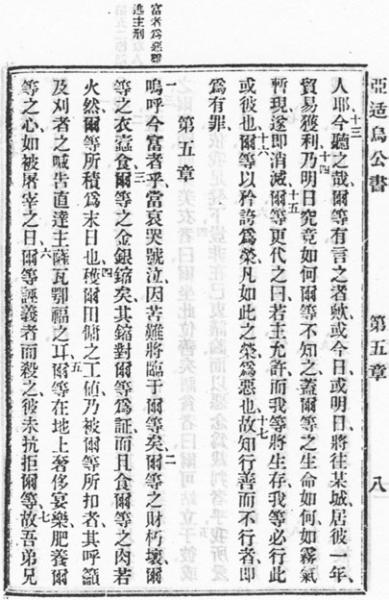 亞适烏公書 第五章 八
人耶十三今聽之哉爾等有言之者歟或今日或明日將往某城居彼一年、
貿易獲利十四乃明日究竟如何爾等不知之蓋爾等之生命如何如霧氣
暫現遂即消滅十五爾等更代之曰若主允許而我等將生存我等必行此
或彼也十六爾等以矜誇爲榮凡如此之榮爲惡也十七故知行善而不行者即
爲有罪
第五章
一嗚呼今富者乎當哀哭號泣因苦難將臨于爾等矣二爾等之財朽壞爾
等之衣蠹食三爾等之金銀鏥矣其鏥對爾等爲証而且食爾等之肉若
火然爾等所積爲末日也四穫爾田傭之工値乃被爾等所扣者其呼籲
及刈者之喊告直達主薩瓦鄂福之耳五爾等在地上奢侈宴樂肥養爾
等之心如被屠宰之日六爾等誣義者而殺之彼未抗拒爾等七故吾弟兄
富者爲惡難
逃主刑